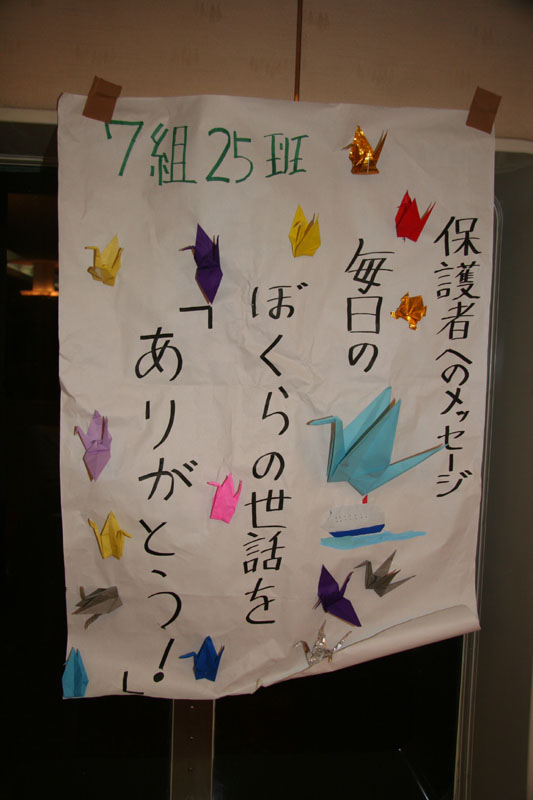 7組25班
保護者へのメッセージ
毎日の
ぼくらの世話を
「ありがとう!」